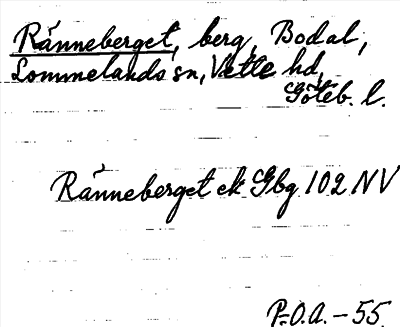 Ränneberget, berg, Bodal,
Lommelands sn, Vette hd,
Göteb. l.
Ränneberget ek Gbg 102 NV
P.O.A. - 55